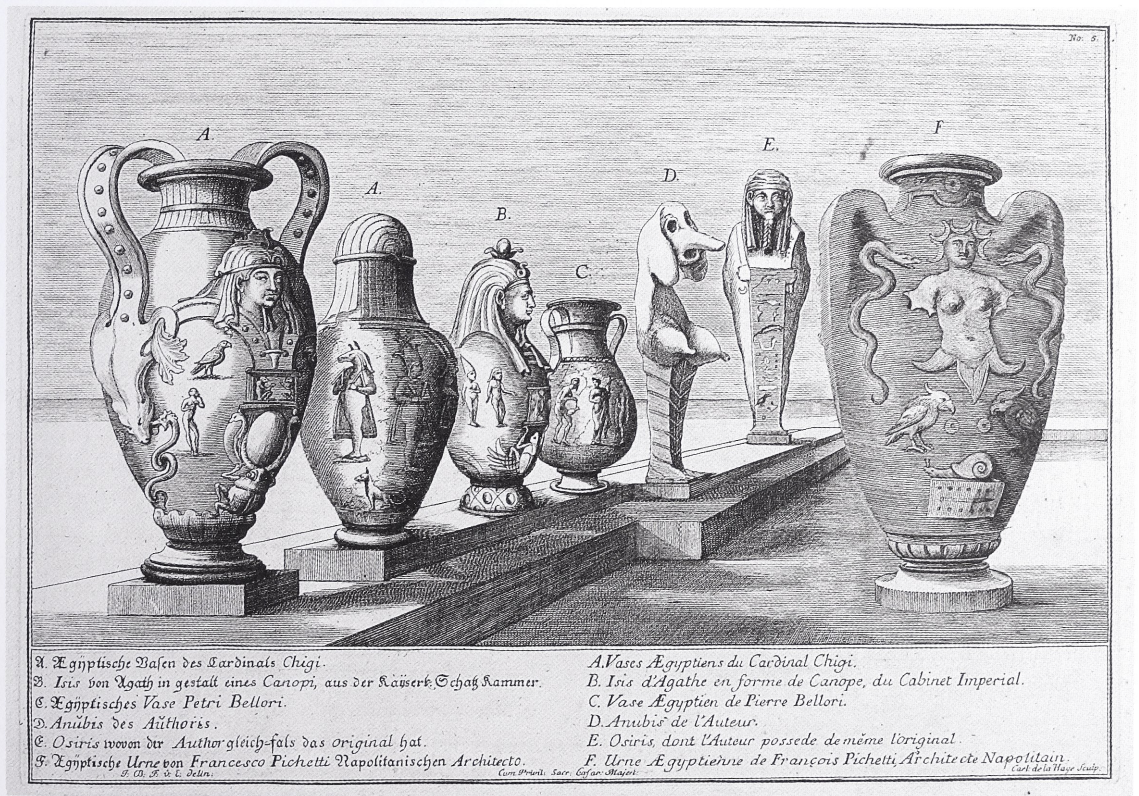 No. 5.
A.
A.
B.
C.
D.
E.
F
A. Ægÿptische Vasen des Cardinals Chigi.
B. Isis von Agath in gestalt eines Canopi, aus der Kaÿserl. Schatz Kammer.
C. Ægÿptisches Vase Petri Bellori.
D. Anŭbis des Aŭthoris.
E. Osiris wovon der Author gleich-fals das original hat.
F. Ægÿptische Urne von Francesco Pichetti Napolitanischen Architecto.
A. Vases Ægyptiens du Cardinal Chigi.
B. Isis d'Agathe en forme de Canope, du Cabinet Imperial.
C. Vase Ægyptien de Pierre Bellori.
D. Anubis de l'Auteur.
E. Osiris, dont l'Auteur possede de même l'original.
F. Urne Ægyptienne de François Pichetti, Architecte Napolitain.
delin. Cum Privil: Sacr: Cæsar: Majest: Carl: de la Haye Sculp.